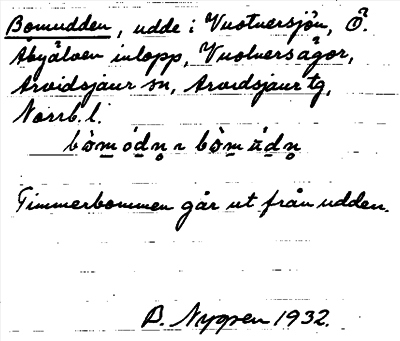 Bomudden, udde i Vuotnersjön, Ö.
Abyälven inlopp, Vuotnersågor,
Arvidsjaur sn, Arvidsjaur tg,
Norrb. l.
bòm ódn ~ bòm údn
Timmerbommen går ut från udden.
B. Nygren 1932.